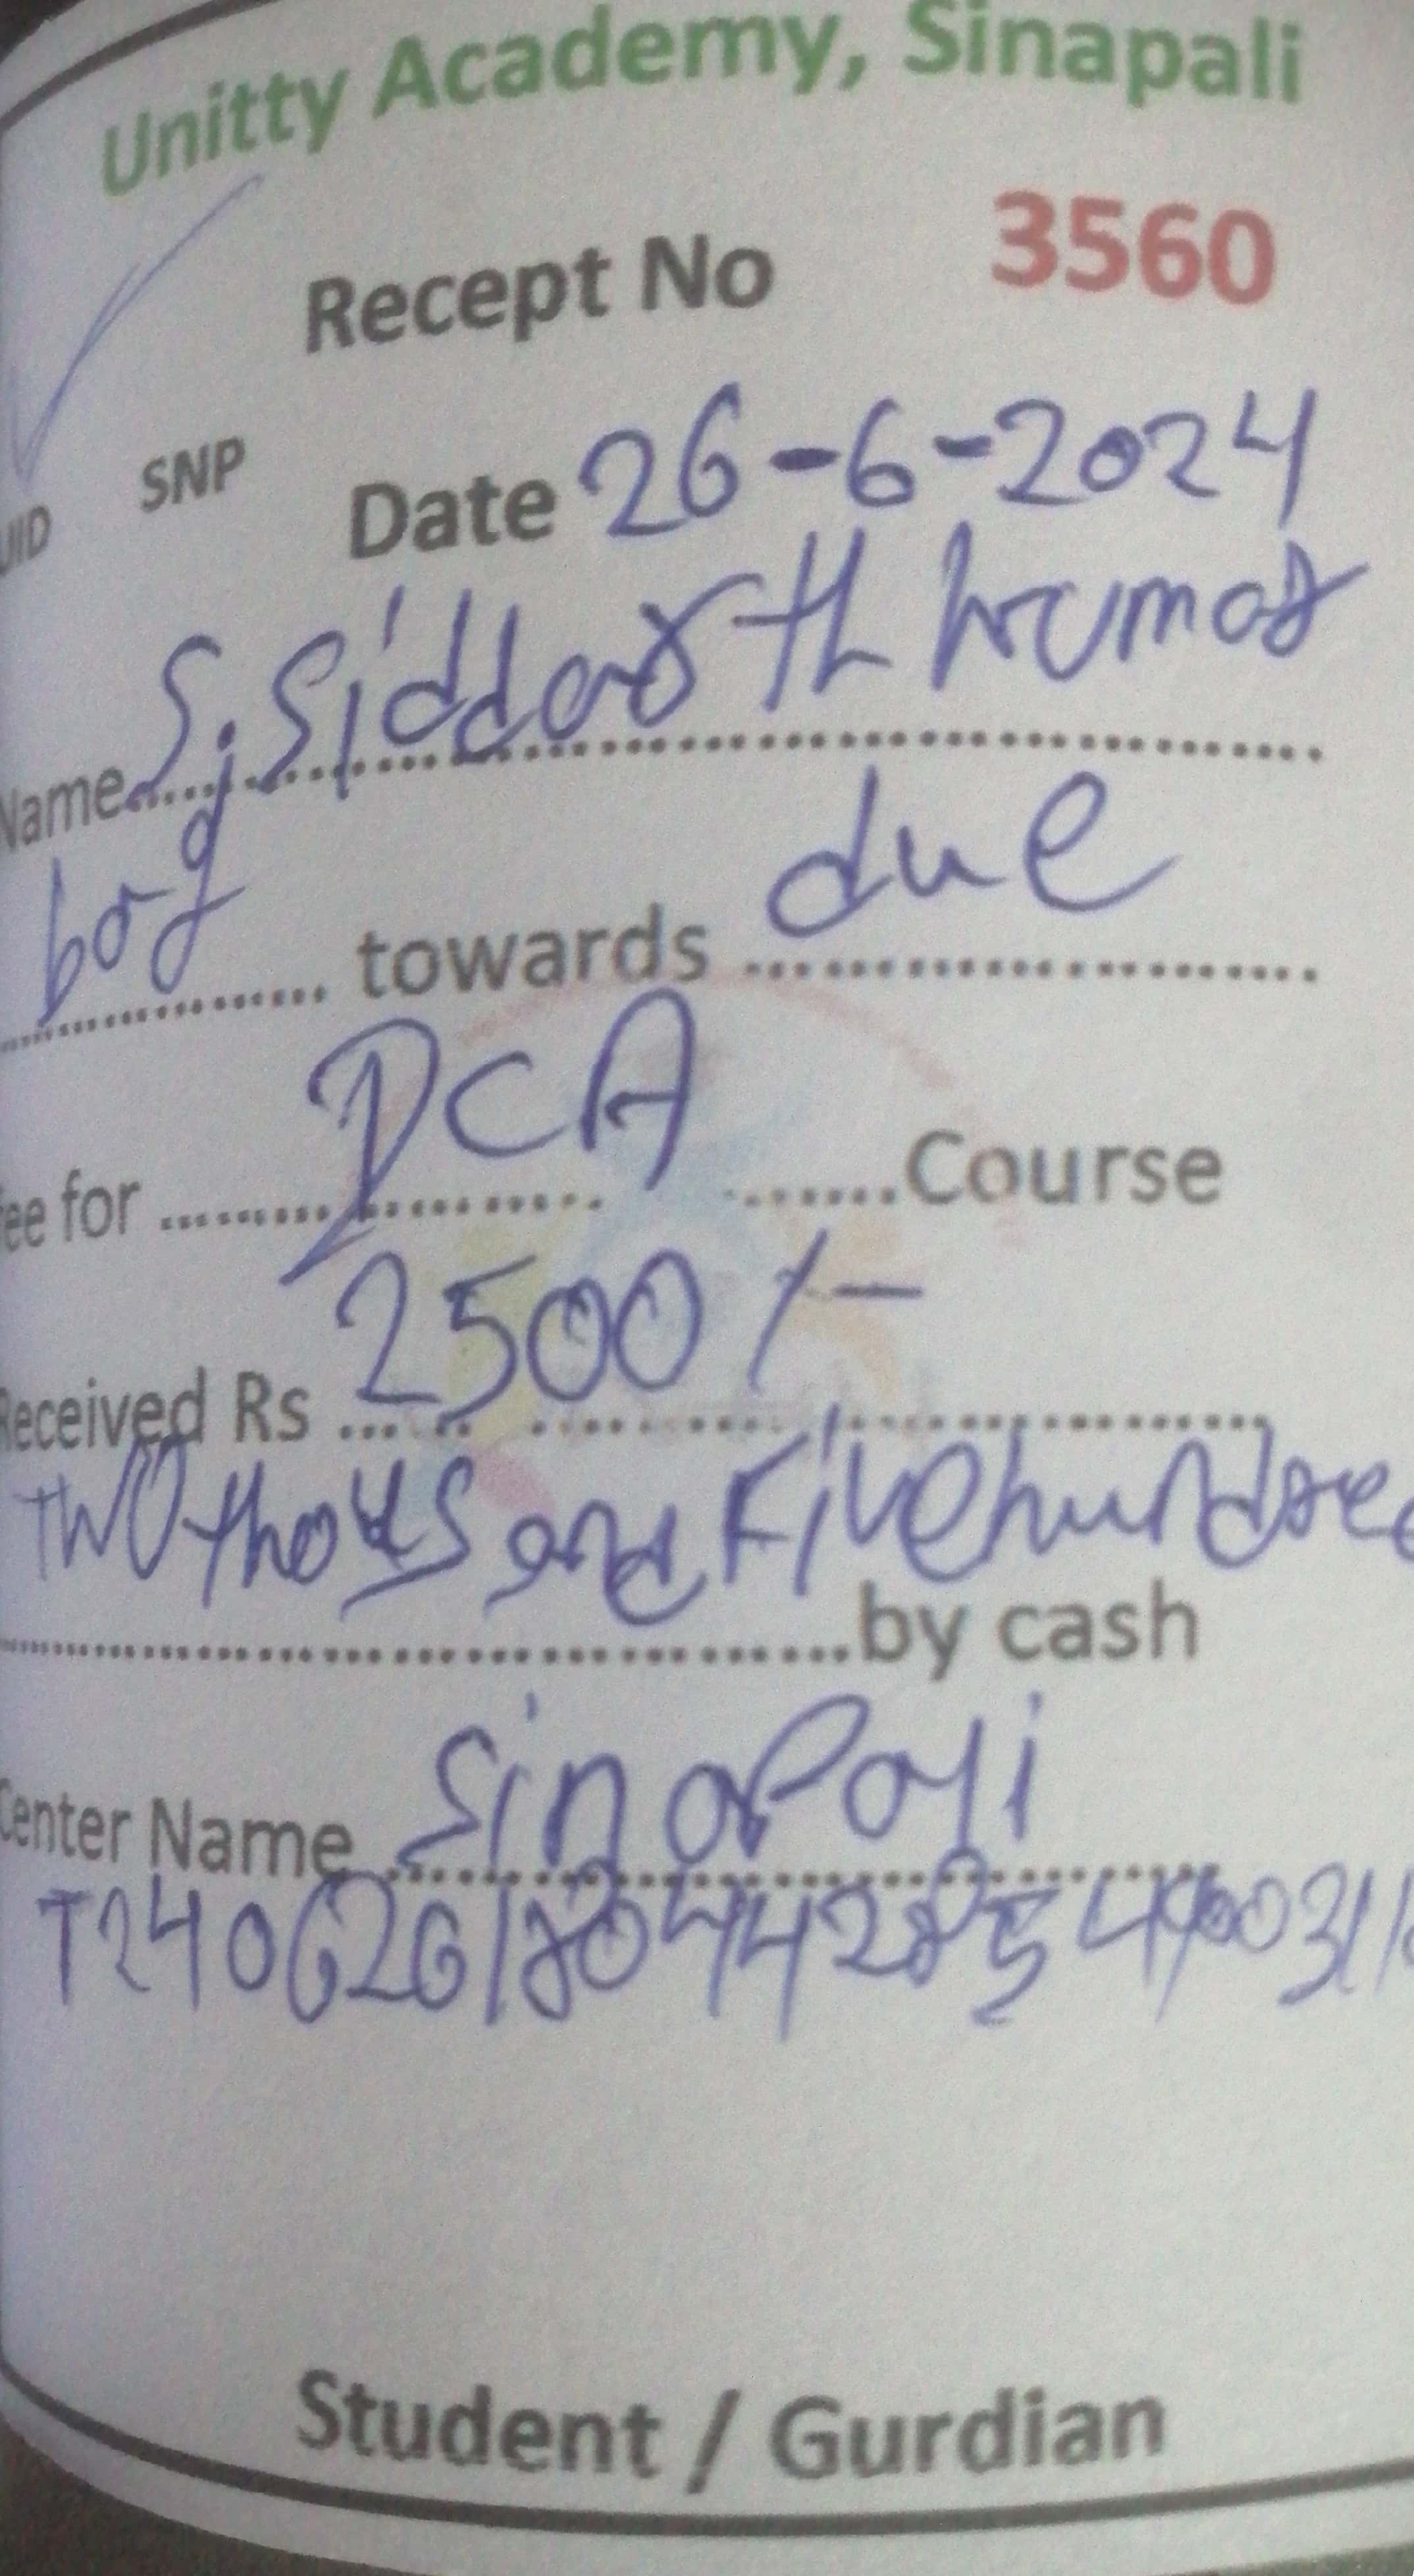 Unitty Academy, Sinapali
Recept No 3560
UID SNP Date 26-6-2024
Name S. Siddarth kumar
bag towards due
ee for DCA Course
Received Rs 2500/-
Two thousand Five hundred
by cash
Center Name Sinapali
Student / Gurdian